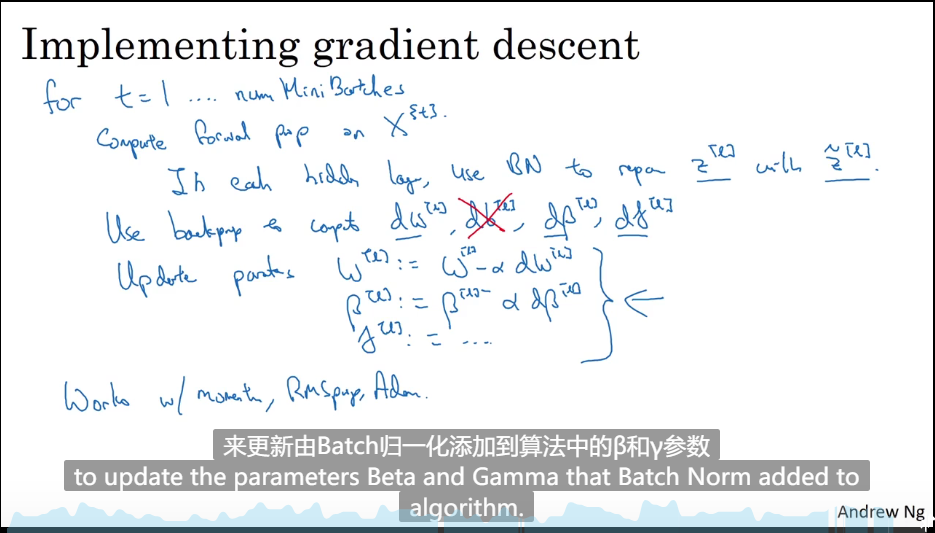 Implementing gradient descent
for t = 1 .... num Mini Batches
Compute forwad pop on X^{t}.
In eah hidden lay, use BN to repa z^[l] with z̃^[l].
Use backprop to compt dw^[l], db^[l], dβ^[l], dγ^[l]
Update parates w^[l] := w^[l] - α dw^[l]
β^[l] := β^[l] - α dβ^[l]
γ^[l] := ....
Works w/ moment, RMSprop, Adam.
来更新由Batch归一化添加到算法中的β和γ参数
to update the parameters Beta and Gamma that Batch Norm added to
algorithm.
Andrew Ng